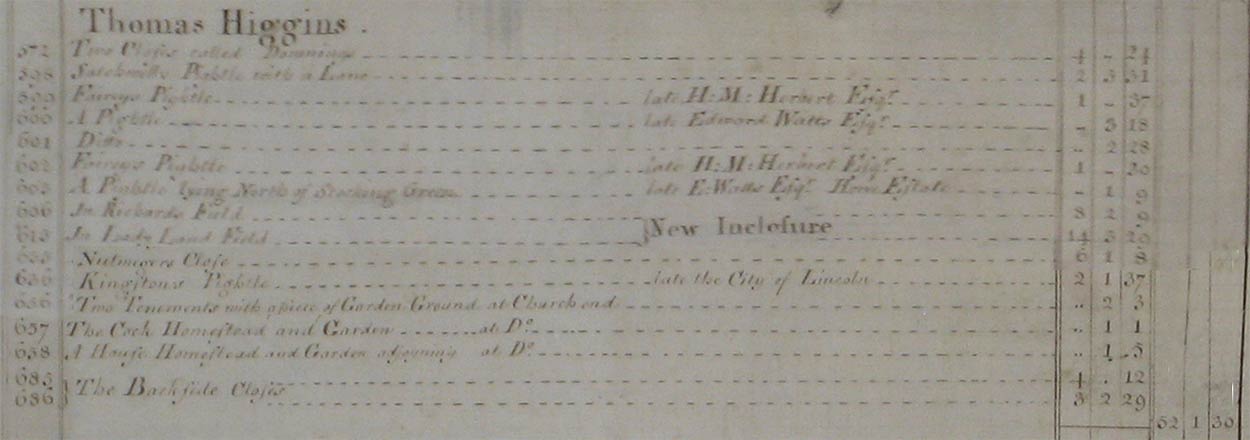 Thomas Higgins.
572 Two Closes called Downings 4 - 24
598 Pightle with a Lane 2 3 31
599 Faireys Pightle late H: M: Herbert Esqr. 1 - 37
600 A Pightle late Edward Watts Esqr. - 3 18
601 Ditto - 2 28
602 Faireys Pightle late H: M: Herbert Esqr. 1 - 30
603 A Pightle lying North of Stocking Green late E: Watts Esqr. Home Estate - 1 9
606 In Rickards Field 8 2 9
613 In Lady Land Field } New Inclosure 14 3 29
635 Close 6 1 8
636 Kingstons Pightle late the City of Lincoln 2 1 37
656 Two Tenements with a piece of Garden Ground at Church end .. 2 3
657 The Cock Homestead and Garden at Do. .. 1 1
658 A House Homestead and Garden adjoining at Do. .. 1 5
685 4 . 12
686 } The Backside Closes 3 2 29
52 1 30